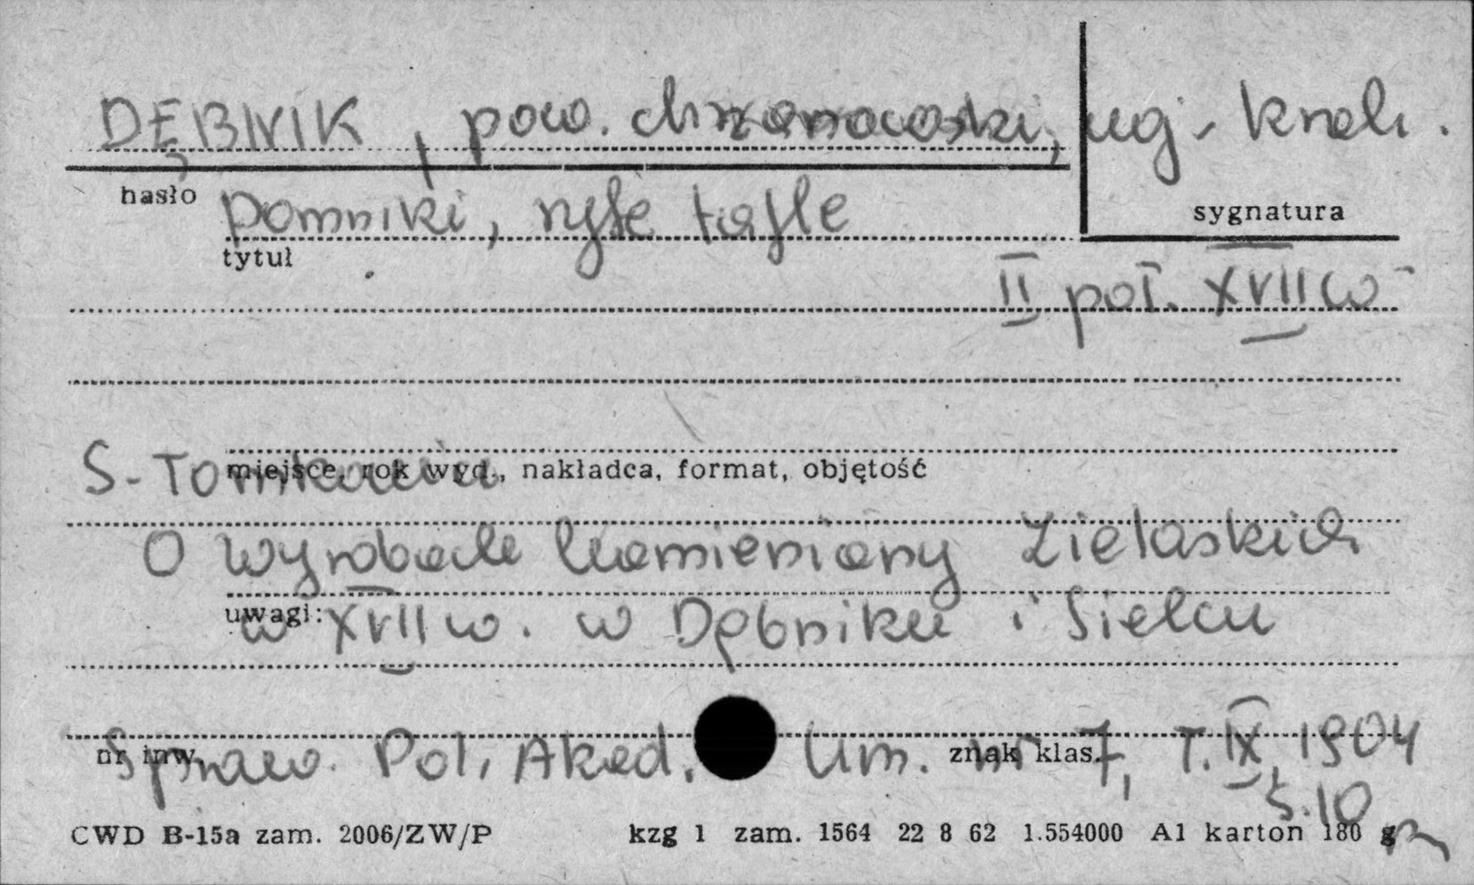 DĘBNIK, pow. chrzanowski, wg. krak.
hasło
sygnatura
pomniki, ryte tafle
tytuł
II poł. XVII w
S. Tomkowicz
miejsce, rok wyd., nakładca, format, objętość
O wyrobach kamieniarzy
uwagi:
w XVII w. w Dębniku i Sielcu
Spraw. Pol. Akad. Um. nr 7, T. IX, 1904
nr inw.
znak klas.
s. 10
CWD B-15a zam. 2006/ZW/P kzg 1 zam. 1564 22 8 62 1.554000 A1 karton 180 g